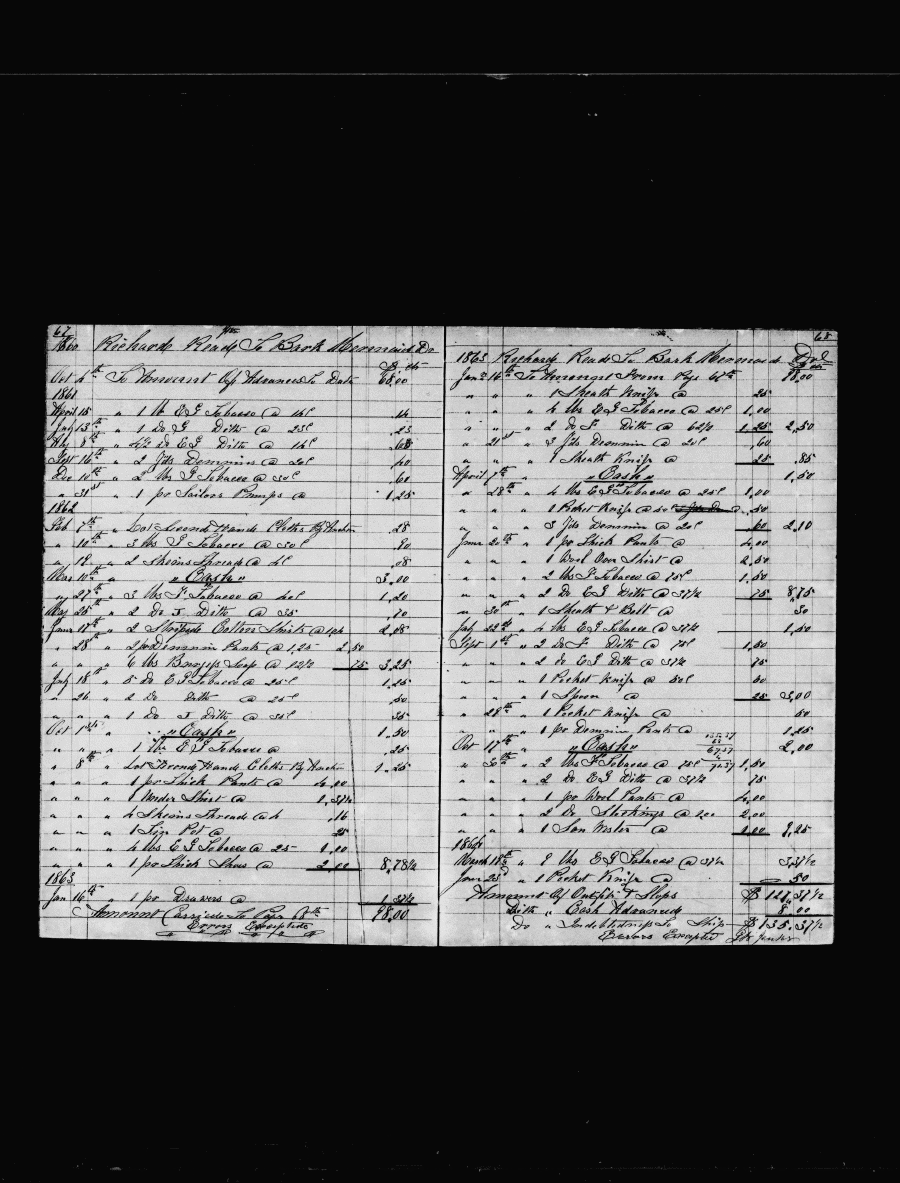 67
1860 Richard Read To Bark Mermaid Dr
$ cts
Oct 4th To Amount Of Advances To Date 68.00
1861
April 15 " 1 lb E G Tobacco @ 14c .14
July 13th " 1 Do G Ditto @ 23c .23
" 8th " 4/2 Do E G Ditto @ 14c
Sept 16th " 2 Yds Demmins @ 20c 40
Dec 10th " 2 lbs F Tobacco @ 30c 60
" 31st " 1 pr Sailors Pumps @ 1.25
1862
Feb 7th " Lot Second Hands Cloths By Auction .28
" 10th " 3 lbs F Tobacco @ 30c 90
" 12 " 2 Skeins Thread @ 4c .08
Mar 10th " "Cash" 3.00
" 27th " 3 lbs F. Tobacco @ 40c 1.20
May 25th " 2 Do F Ditto @ 35 .70
June 17th " 2 Striped Cotton Shirts @ 1.04 2.08
" 28th " 2 pr Demmin Pants @ 1.25 2.50
" " " 6 lbs Soap @ 12/2 75 3.25
July 18th " 5 do E G Tobacco @ 25c 1.25
" 26 " 2 Do Ditto @ 25c 50
" " " 1 Do F Ditto @ 35c 35
Oct 1st " "Cash" 1.50
" " " 1 lb E G Tobacco @ .25
" 8th " Lot Second Hands Cloths By Auction 1.25
" " " 1 pr Thick Pants @ 4.00
" " " 1 Under Shirt @ 1.37½
" " " 4 Skeins Threads @ 4 .16
" " " 1 Pot @ 25
" " " 4 lbs E G Tobacco @ 25 1.00
" " " 1 pr Thick Shoes @ 2.00 8.78½
1863
Jan 16th " 1 pr Drawers @ 1.37½
Amount Carried To Page 68th 98.00
Errors Excepted
68
1863 Richard Read To Bark Mermaid Dr
Jany 16th To Amount From Page 67th 98.00
" " " 1 Sheath Knife @ 25
" " " 4 lbs E G Tobacco @ 25c 1.00
" " " 2 do F Ditto @ 62/2 1.25 2.50
" 21st " 3 Yds Demmin @ 20c .60
" " " 1 Sheath Knife @ 25 .85
April 7th " "Cash" 1.50
" 28th " 4 lbs E G Tobacco @ 25c 1.00
" " " 1 Pocket Knife @ 50c .50
" " " 3 Yds Demmin @ 20c 60 2.10
June 20th " 1 pr Thick Pants @ 4.00
" " " 1 Wool Over Shirt @ 2.50
" " " 2 lbs F Tobacco @ 75c 1.50
" " " 2 Do E G Ditto @ 37/2 75 8.75
" 30th " 1 Sheath & Belt @ 50
July 22nd " 4 lbs E G Tobacco @ 37/2 1.50
Sept 1st " 2 Do F Ditto @ 75c 1.50
" " " 2 do E G Ditto @ 37/2 75
" " " 1 Pocket Knife @ 50c 50
" " " 1 Spoon @ 25 3.00
" 28th " 1 Pocket Knife @ 50
" " " 1 pr Demmin Pants @ 1.25
Oct 17th " "Cash" 2.00
" 30th " 2 lbs F Tobacco @ 75c 1.50
" " " 2 do E G Ditto @ 37/2 75
" " " 1 pr Wool Pants @ 4.00
" " " 2 Do Stockings @ 2.00
" " " 1 Sou Wester @ 1.00 9.25
1864
March 18th " 9 lbs E G Tobacco @ 37/2 3.37½
June 25th " 1 Pocket Knife @ .50
Amount Of Outfits & Slops $ 127.37½
Ditto " Cash Advanced 8.00
Do " Indebtedness To Ship $ 135.37½
Errors Excepted